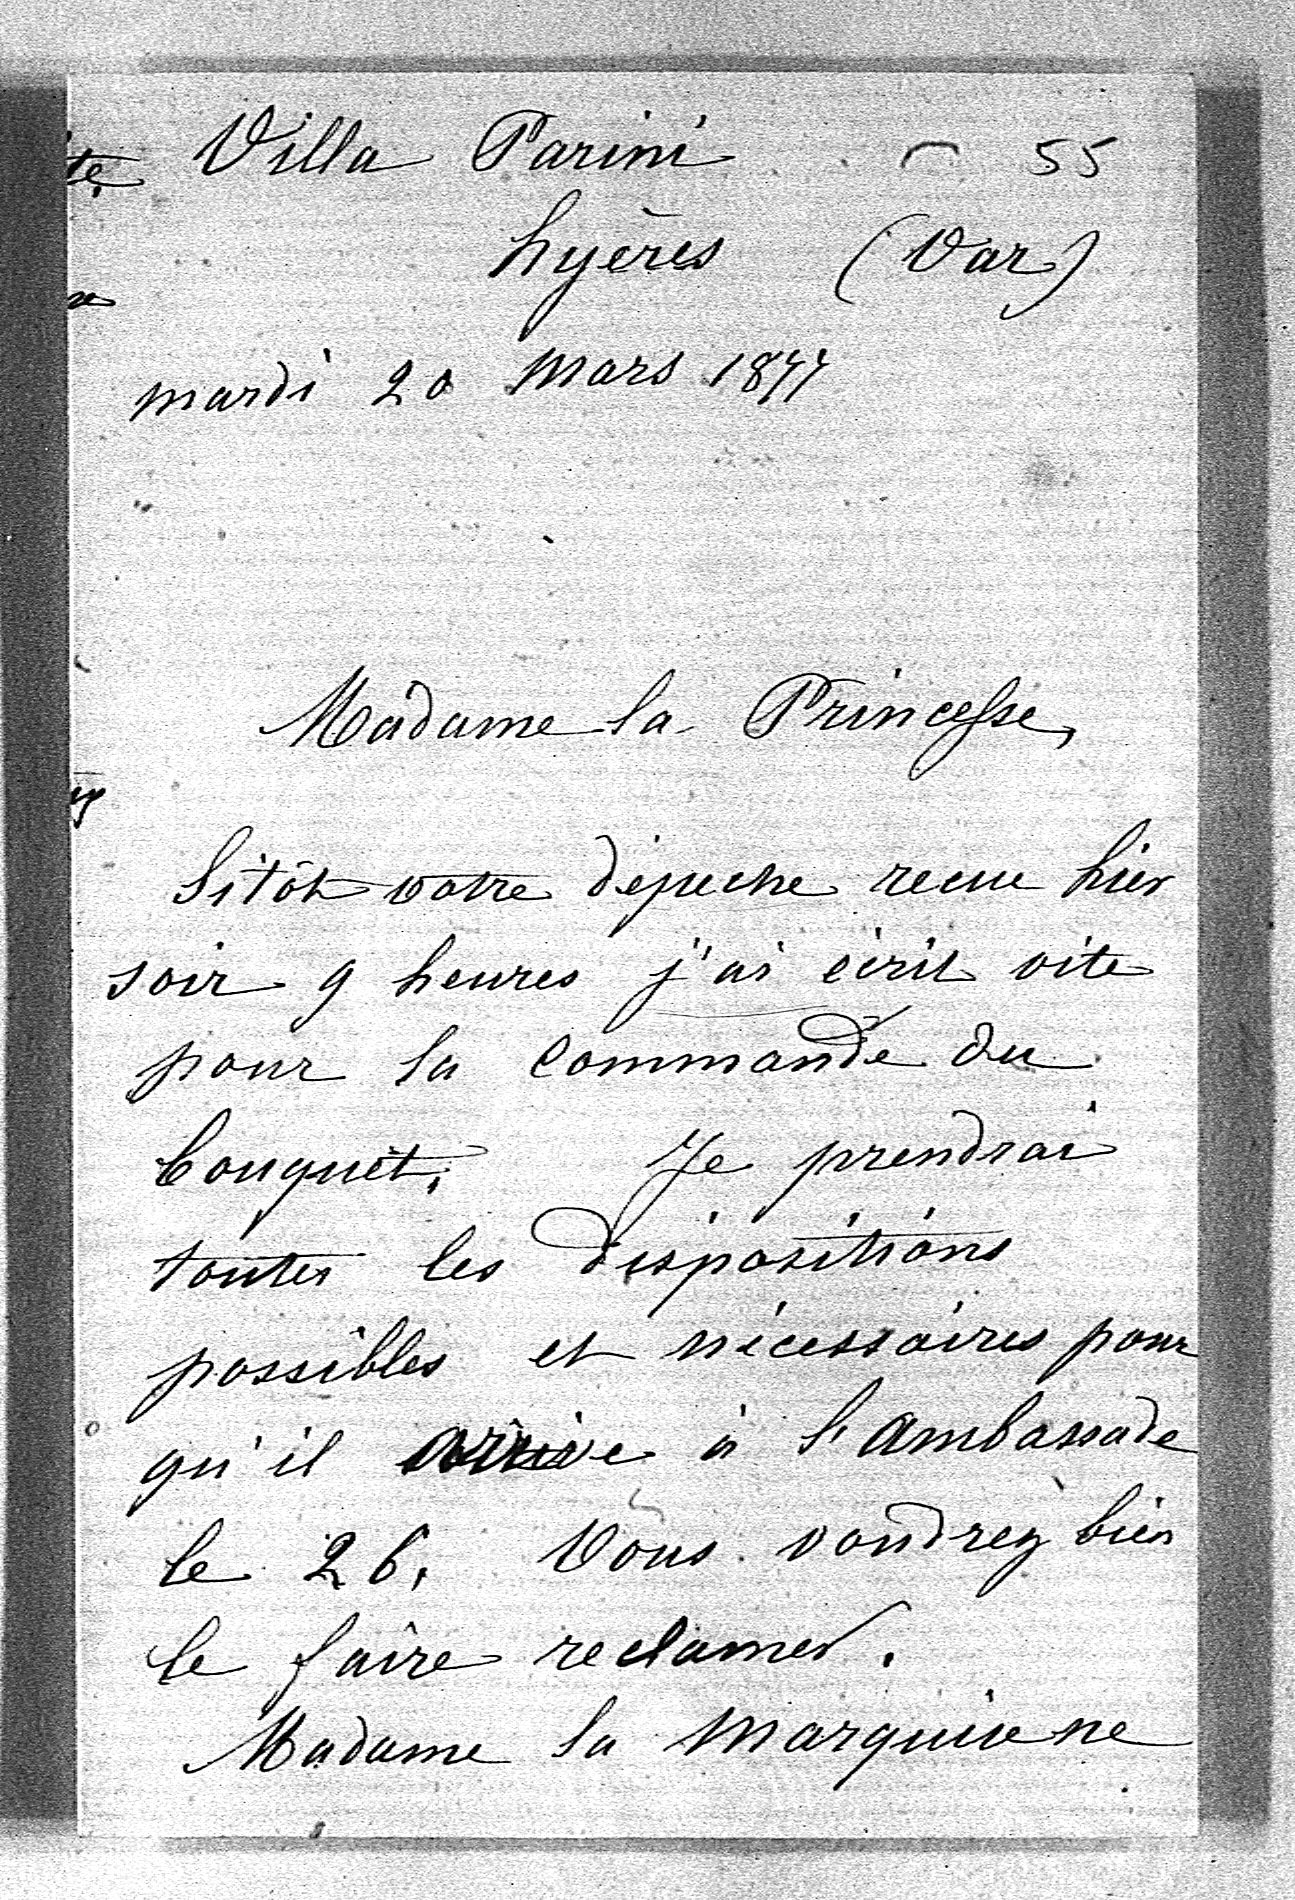 Villa Parini 55
hyères (Var)
mardi 20 Mars 1877
Madame la Princesse,
Sitôt votre dépeche recue hier
soir 9 heures j'ai écrit vite
pour la commande du
bouquet. Je prendrai
toutes les dispositions
possibles et nécessaires pour
qu'il arrive à l'ambassade
le 26. Vous voudrez bien
le faire reclamer.
Madame la Marquise ne